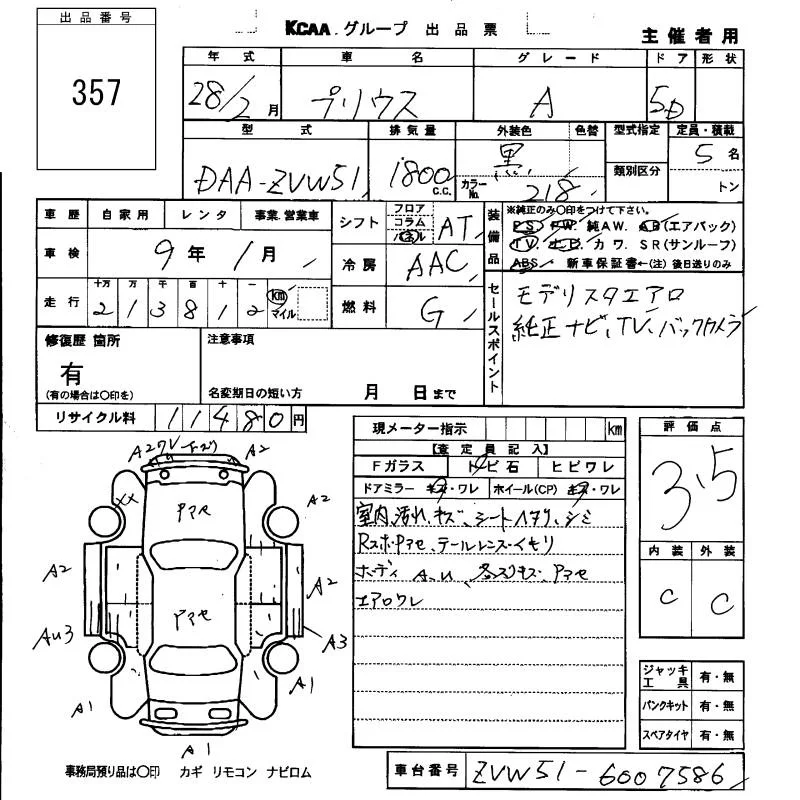 出品番号
357
KCAA.グループ 出品票
主催者用
年式 車名 グレード ドア 形状
28/2月 プリウス A 5D
型式 排気量 外装色 色替 型式指定 定員・積載
DAA-ZVW51 1800c.c. 黒 5名
カラーNo. 218 類別区分 トン
車歴 自家用 レンタ 事業.営業車
シフト フロア コラム パネル AT
装備品
※純正のみ〇印をつけて下さい。
PS PW. 純AW. AB(エアバック)
TV ナビ カワ. SR(サンルーフ)
ABS 新車保証書←(注)後日送りのみ
車検 9年 1月
冷房 AAC
走行 十万 万 千 百 十 一
213812 km マイル
燃料 G
セールスポイント
モデリスタエアロ
純正ナビ、TV、バックカメラ
修復歴 箇所
有
(有の場合は〇印を)
注意事項
名変期日の短い方 月 日まで
リサイクル料 11480円
現メーター指示 km
【査定員記入】
Fガラス トビ石 ヒビワレ
ドアミラー キズ・ワレ ホイール(CP) キズ・ワレ
室内、汚れ、キズ、シートヘタリ、シミ
Rスポ・Pアセ、テールレンズ・イモリ
ボディ A.U、各スリキズ・Pアセ
エアロワレ
評価点
3.5
内装 外装
C C
A2 A2
XX Pアセ A2
A2 A2
Pアセ
AU3 A3
A1 A1
A1
ジャッキ工具 有・無
パンクキット 有・無
スペアタイヤ 有・無
事務局預り品は〇印 カギ リモコン ナビロム
車台番号 ZVW51-6007586